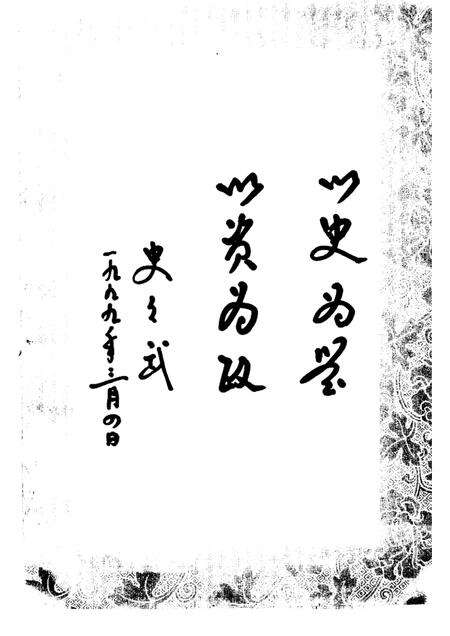 以史为鉴
以资为政
史 武
一九九九年三月四日